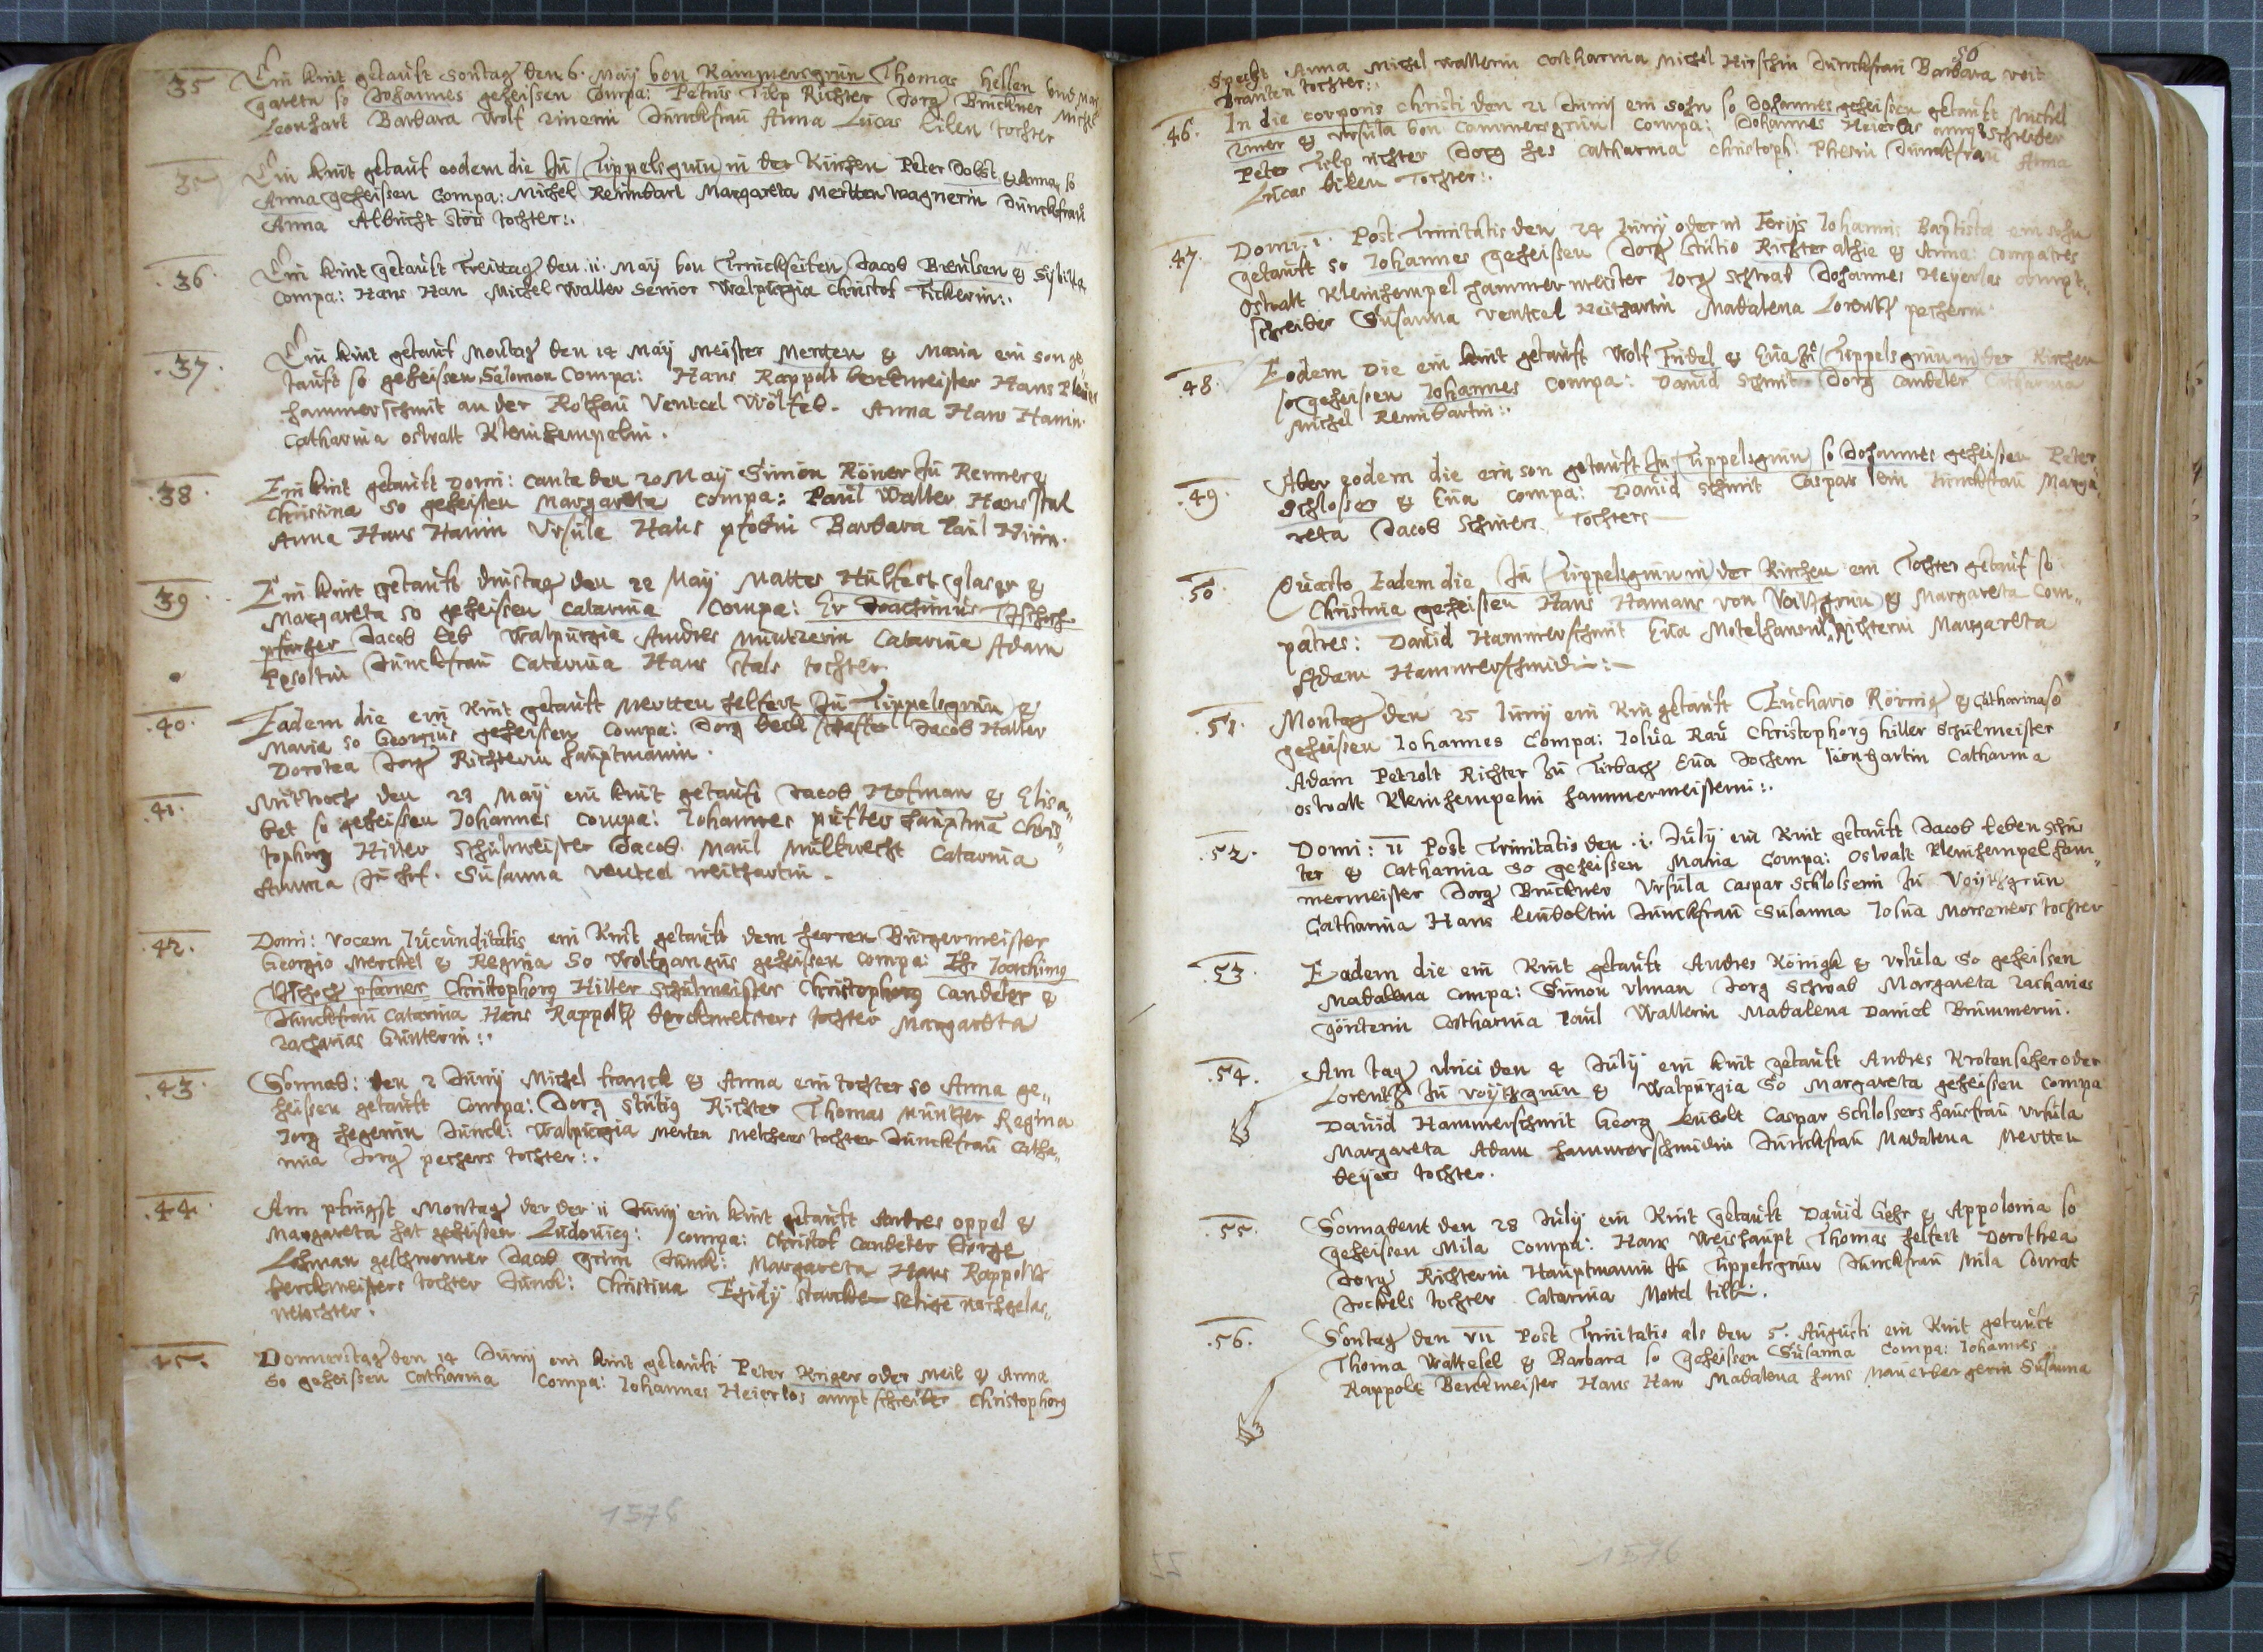 35 Ein kint getauft Sontag den 6. Maij von Rammersgrun Thomas hellen und Mar
gareta so Johannes geheissen Compa: Petrus Tilp Richter Jorg Bruckner Michel
Leonhart Barbara Wolf zinerin Junckfrau Anna Lucas Eilen tochter
35 Ein kint getauf eodem die zu Tippelsgrun in der Kirchen Peter Dolst & Anna so
Anna geheissen Compa: Michel Reinbart Margareta Mertten Wagnerin Junckfrau
Anna Albricht Stoü tochter:.
N.
.36. Ein kint getauft Freittag den .ii. Maij von Trinckseiten Jacob Breulsen & Sibilla
Compa: Hans Han Michel Waller Senior Walpurgia Christof Fickerin:.
.37. Ein kint getauft Montag den 14 Maij Meister Merten & Maria ein son ge„
tauft so geheissen Salomon Compa: Hans Rappolt berckmeister Hans
hammerschmit an der Rothau Ventcel Wölfel. Anna Hans Hanin.
Catharina Oswalt Kleinhempelin.
.38. Ein kint getauft Domi: Canta den 20 Maij Simon Röner zu Renner &
Christina so geheissen Margareta Compa: Paul Waller Hans Stal
Anna Hans Hanin Ursula Hans Barbara Paul
39. Ein kint getauft dinstag den 22 Maij Mattes Hülfert glaser &
Margareta so geheissen Catarina Compa: Er Joachimus Tschoch
pfarher Jacob Leb Walpurgia Andres Müntzerin Catarina Adam
Pesoltin Junckfrau Catarina Hans Stals tochter
.40. Eadem die ein kint getauft Mertten helfert zu Tippelsgrun &
Maria so Georgius geheissen Compa: Jorg beck schaffer Jacob Haller
Dorotea Jorg Richterin hauptmanin.
.41. Mittwoch den 23 Maij ein kint getauft Jacob Hofman & Elisa„
bet so geheissen Johannes Compa: Johannes pütter hauptma Chris„
tophorg Hiller Schulmeister Jacob Maul Mülknecht Catarina
Anna Junckf. Susanna Ventcel neithartin.
.42. Domi: Vocem Jucunditatis ein kint getauft dem herren Bürgermeister
Georgio Merckel & Regina So Wolfgangus geheissen Compa: Ehr Joachimg
Tschoch pfarner Christophorg Hiller Schulmeister Christophorg Candeler &
Junckfrau Catarina Hans Rappoltz berckmeisters tochter Margareta
Zacharias Günterin:.
.43. Sonnab: den 2 Junij Michel franck & Anna ein tochter so Anna ge„
heissen getauft Compa: Jorg Stutig Richter Thomas Müntzer Regina
Jorg hegerin Junck: Walpurgia Merten Melchers tochter Junckfrau Catha„
rina Jorg pechers tochter:.
.44. Am pfingst Montag der der .ii Junij ein kint getauft Andres oppel &
Margareta hat geheissen Ludouicg: Compa: Christof Candeler George
Lehman geschworner Jacob grim Junck: Margareta Hans Rappoltz
berckmeisters tochter Junck: Christina Egidij Starcken Selige nachgelas„
netochter.
45. Donnerstag den 14 Junij ein kint getauft Peter Kriger oder Meil & Anna
So geheissen Catharina Compa: Johannes Heierlos amptschreiber Christophorg
1576
56
Specht Anna Michel Wallerin Catharina Michel Hirschin Junckfrau Barbara Veit
Branten tochter:.
.46. In die corporis christi den 21 Junij ein sohn so Johannes geheissen getauft Michel
ziner & Ursula von Cammersgrun Compa: Johannes Heierlos amptschreiber
Peter Tilp richter Jorg hes Catharina Christoph Junckfrau Anna
Lucas Eilen Tochter:.
.47. Domi: i. Post Trinitatis den 24 Junij oder in Ferijs Johannis Baptista ein sohn
getauft so Johannes geheissen Jorg Stutio Richter alhie & Anna: Compatres
Oswalt Kleinhempel hammermeister Jorg Schwab Johannes Heyerlas ampt„
schreiber Susanna Ventcel Neithartin Madalena Lorentz pecherin.
.48. Eodem Die ein kint getauft Wolf Fridel & Eua zu Tippelsgrun in der Kirchen
so geheissen Johannes Compa: Dauid Schmit Jorg Candeler Catharina
Michel Reinbartin:.
.49. Aber eodem die ein son getauft zu Tippelsgrun so Johannes geheissen Peter
Schlosser & Eua Compa: Dauid Schmit Caspar Junckfrau Marga„
reta Jacob Schmers Tochter
50. Quarto Eadem die zu Tippelsgrun in der Kirchen ein Tochter getauf so
Christina geheissen Hans Hamans von Voitzgrun & Margareta Com„
patres: Dauid Hammerschmit Eua Motelhansin Richterin Margareta
Adam Hammerschmidin:
.51. Montag den 25 Junij ein Kin getauft Euchario Rörrig & Catharina so
geheissen Johannes Compa: Josua Rau Christophorg hiller Schulmeister
Adam Petzolt Richter zu Tirbach Eua Jochem leonhartin Catharina
Oswalt Kleinhempelin hammermeisterin:.
.52. Domi: II Post Trinitatis den .i. Julij ein Kint getauft Jacob leben Schus
ter & Catharina So geheissen Maria Compa: Oswalt Kleinhempel ham„
mermeister Jorg Bruckner Ursula Caspar Schlosserin zu Voijtzgrun
Catharina Hans leuboltin Junckfrau Susanna Josua Morseners tochter
.53. Eadem die ein Kint getauft Andres Königk & Ursula So geheissen
Madalena Compa: Simon Ulman Jorg Schwab Margareta Zacharies
gönterin Catharina Paul Wallerin Madalena Daniel Brümmerin.
.54. Am tag Ulrici den 4 Julij ein kint getauft Andres Krotenseher oder
Lorentz zu Voijtzgrun & Walpurgia So Margareta geheissen Compa
Dauid Hammerschmit Georg Leubolt Caspar Schlossers hausfrau Ursula
Margareta Adam hammerschmidin Junckfrau Madalena Mertten
beijers tochter.
.55. Sonnabent den 28 Julij ein Kint getauft Dauid Gehr & Appolonia so
geheissen Mila Compa: Hans Weishaupt Thomas helfert Dorothea
Jorg Richterin Hauptmanin zu Tippelsgrun Junckfrau Mila Conrat
Jockels tochter Catarina Mottel
.56. Sontag den VII Post Trinitatis als den 5. Augusti ein Kint getauft
Thoma Waltesel & Barbara so geheissen Susanna Compa: Johannes
Rappolt Berckmeister Hans Han Madalena hans Mauerbergerin Susanna
55
1576